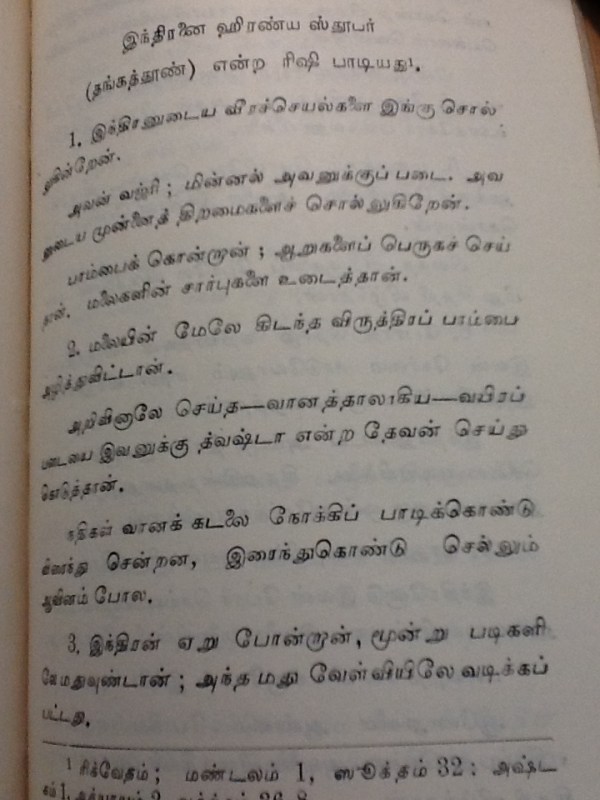 இந்திரனை ஹிரண்ய ஸ்தூபர்
(தங்கத்தூண்) என்ற ரிஷி பாடியது¹.
1. இந்திரனுடைய வீரச்செயல்களை இங்கு சொல்
லுகின்றேன்.
அவன் வஜ்ரி ; மின்னல் அவனுக்குப் படை. அவ
னுடைய முன்னைத் திறமைகளைச் சொல்லுகிறேன்.
பாம்பைக் கொன்றான் ; ஆறுகளைப் பெருகச் செய்
தான். மலைகளின் சார்புகளை உடைத்தான்.
2. மலையின் மேலே கிடந்த விருத்திரப் பாம்பை
அழித்துவிட்டான்.
அறிவினாலே செய்த—வானத்தாலாகிய—வயிரப்
படையை இவனுக்கு த்வஷ்டா என்ற தேவன் செய்து
கொடுத்தான்.
நதிகள் வானக் கடலை நோக்கிப் பாடிக்கொண்டு
விரைந்து சென்றன, இரைந்துகொண்டு செல்லும்
ஆவினம் போல.
3. இந்திரன் ஏறு போன்றான், மூன்று படிகளி
லே மதுவுண்டான் ; அந்த மது வேள்வியிலே வடிக்கப்
பட்டது.
¹ ரிக்வேதம் ; மண்டலம் 1, ஸூக்தம் 32 : அஷ்ட
கம் 1,